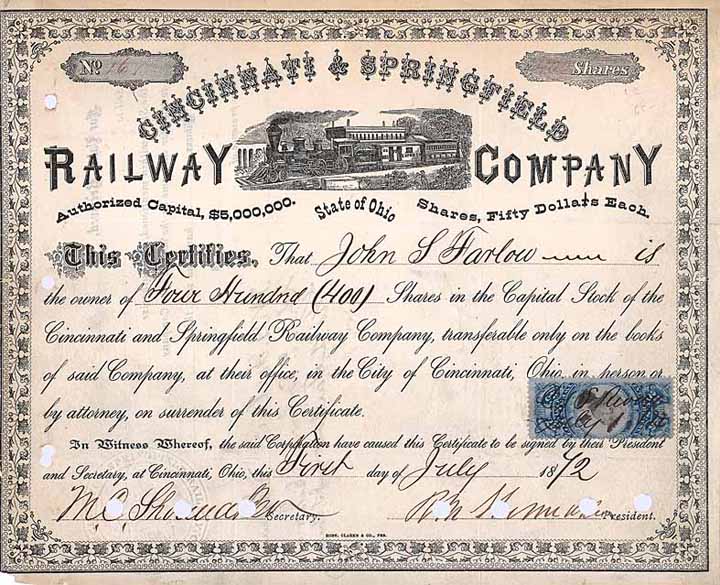 No. 161
Shares
CINCINNATI & SPRINGFIELD
RAILWAY COMPANY
Authorized Capital, $5,000,000. State of Ohio Shares, Fifty Dollars Each.
This Certifies, That John S Farlow is
the owner of Four Hundred (400) Shares in the Capital Stock of the
Cincinnati and Springfield Railway Company, transferable only on the books
of said Company, at their office, in the City of Cincinnati, Ohio, in person or
by attorney, on surrender of this Certificate.
In Witness Whereof, the said Corporation have caused this Certificate to be signed by their President
and Secretary, at Cincinnati, Ohio, this First day of July 1872
M.C. Shoemaker Secretary. President.
ROBT. CLARKE & CO., PRS.